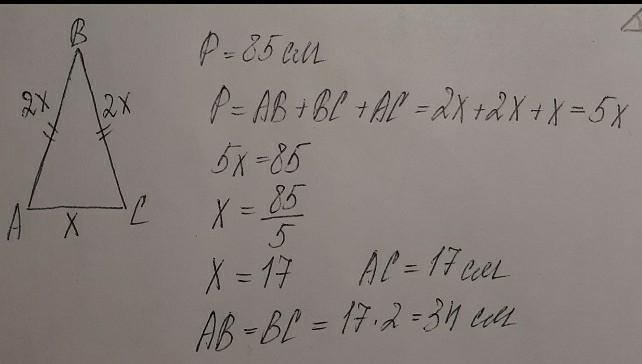 B
2x 2x
A x C
P = 85 см
P = AB + BC + AC = 2x + 2x + x = 5x
5x = 85
x = 85/5
x = 17 AC = 17 см
AB = BC = 17 · 2 = 34 см